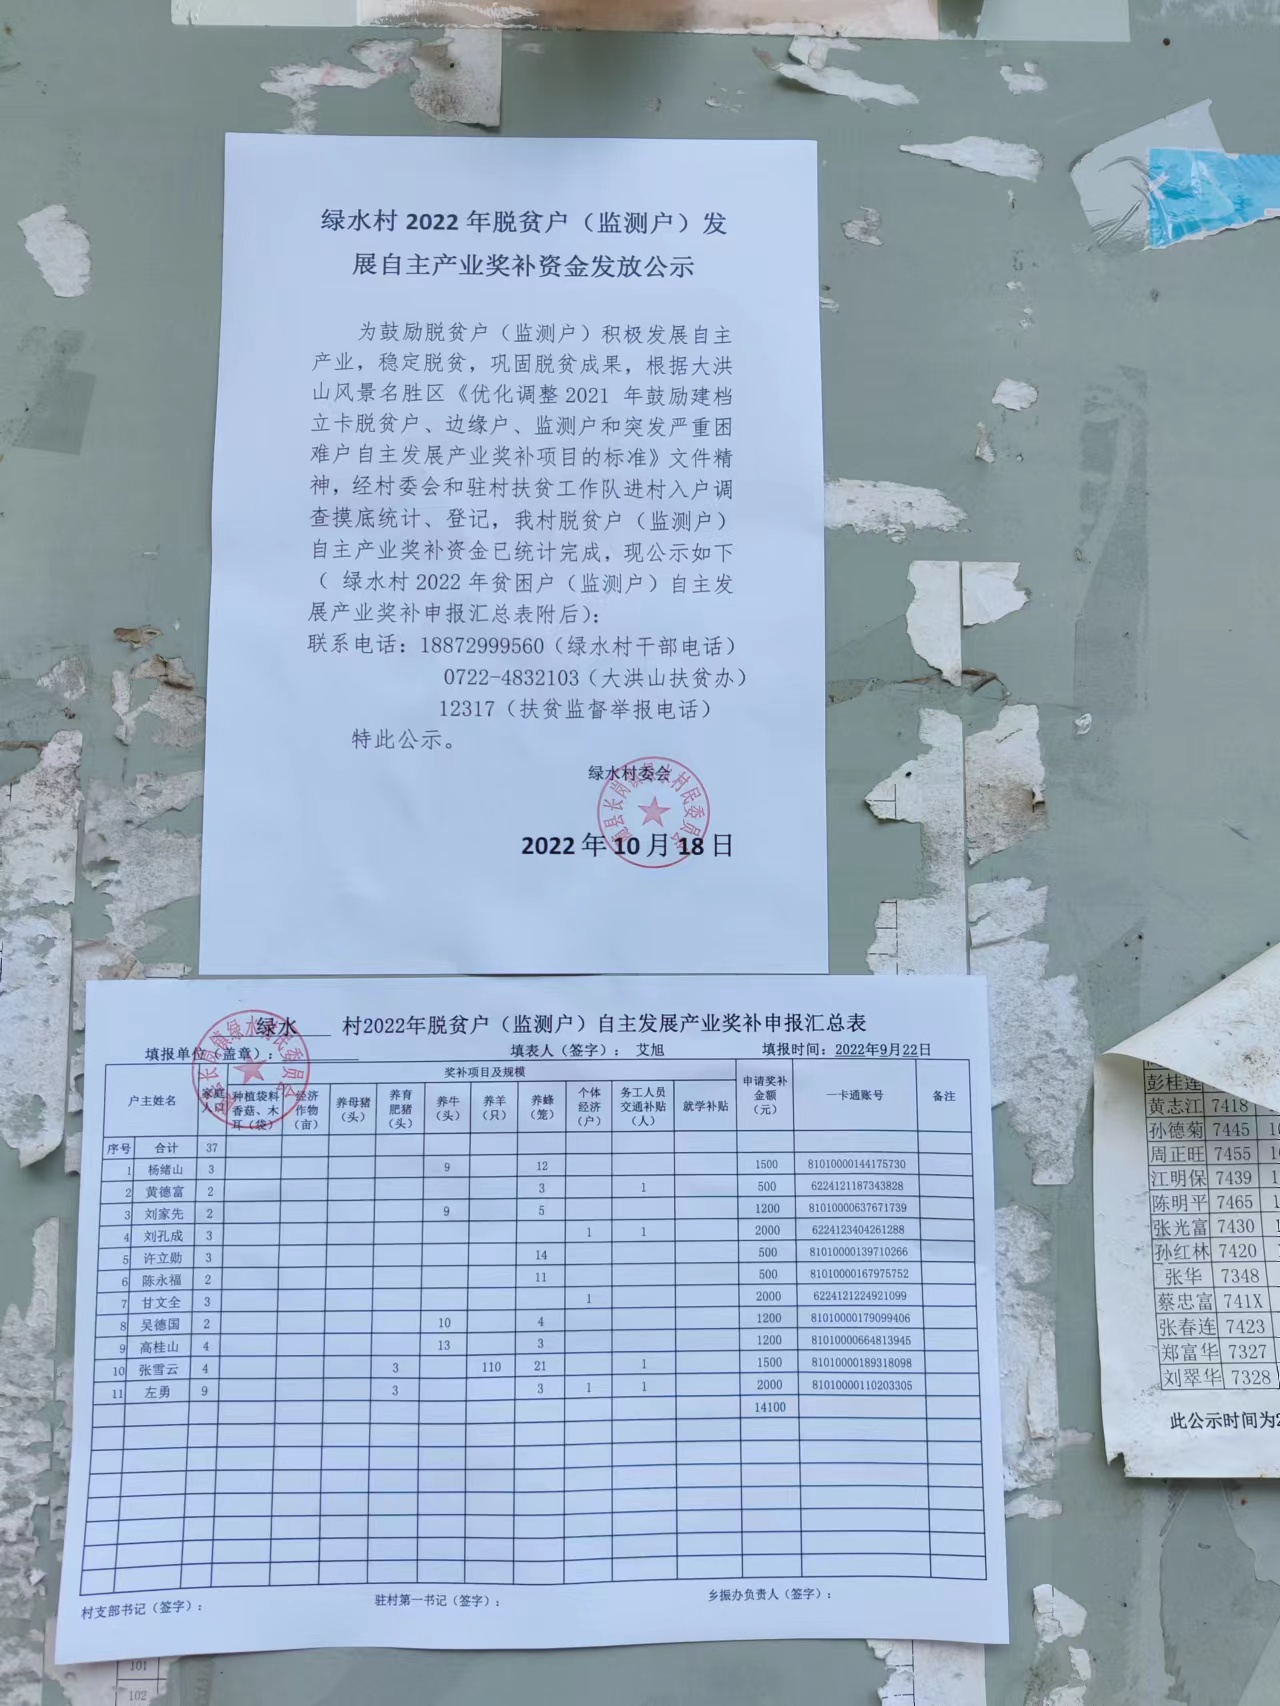 绿水村 2022 年脱贫户（监测户）发
展自主产业奖补资金发放公示
为鼓励脱贫户（监测户）积极发展自主
产业，稳定脱贫，巩固脱贫成果，根据大洪
山风景名胜区《优化调整 2021 年鼓励建档
立卡脱贫户、边缘户、监测户和突发严重困
难户自主发展产业奖补项目的标准》文件精
神，经村委会和驻村扶贫工作队进村入户调
查摸底统计、登记，我村脱贫户（监测户）
自主产业奖补资金已统计完成，现公示如下
（ 绿水村 2022 年贫困户（监测户）自主发
展产业奖补申报汇总表附后）：
联系电话：18872999560（绿水村干部电话）
0722-4832103（大洪山扶贫办）
12317（扶贫监督举报电话）
特此公示。
绿水村委会
随县长岗镇绿水村民委员会
2022 年 10 月 18 日
绿水 村2022年脱贫户（监测户）自主发展产业奖补申报汇总表
填报单位（盖章）： 填表人（签字）： 艾旭 填报时间：2022年9月22日
户主姓名 家庭人口 奖补项目及规模 申请奖补金额（元） 一卡通账号 备注
种植袋料香菇、木耳（袋） 经济作物（亩） 养母猪（头） 养育肥猪（头） 养牛（头） 养羊（只） 养蜂（笼） 个体经济（户） 务工人员交通补贴（人） 就学补贴
序号 合计 37
1 杨绪山 3 9 12 1500 81010000144175730
2 黄德富 2 3 1 500 6224121187343828
3 刘家先 2 9 5 1200 81010000637671739
4 刘孔成 3 1 1 2000 6224123404261288
5 许立勋 3 14 500 81010000139710266
6 陈永福 2 11 500 81010000167975752
7 甘文全 3 1 2000 6224121224921099
8 吴德国 2 10 4 1200 81010000179099406
9 高桂山 4 13 3 1200 81010000664813945
10 张雪云 4 3 110 21 1 1500 81010000189318098
11 左勇 9 3 3 1 1 2000 81010000110203305
14100
村支部书记（签字）： 驻村第一书记（签字）： 乡振办负责人（签字）：
彭桂连
黄志江 7418
孙德菊 7445
周正旺 7455
江明保 7439
陈明平 7465
张光富 7430
孙红林 7420
张华 7348
蔡忠富 741X
张春连 7423
郑富华 7327
刘翠华 7328
此公示时间为2
101
102